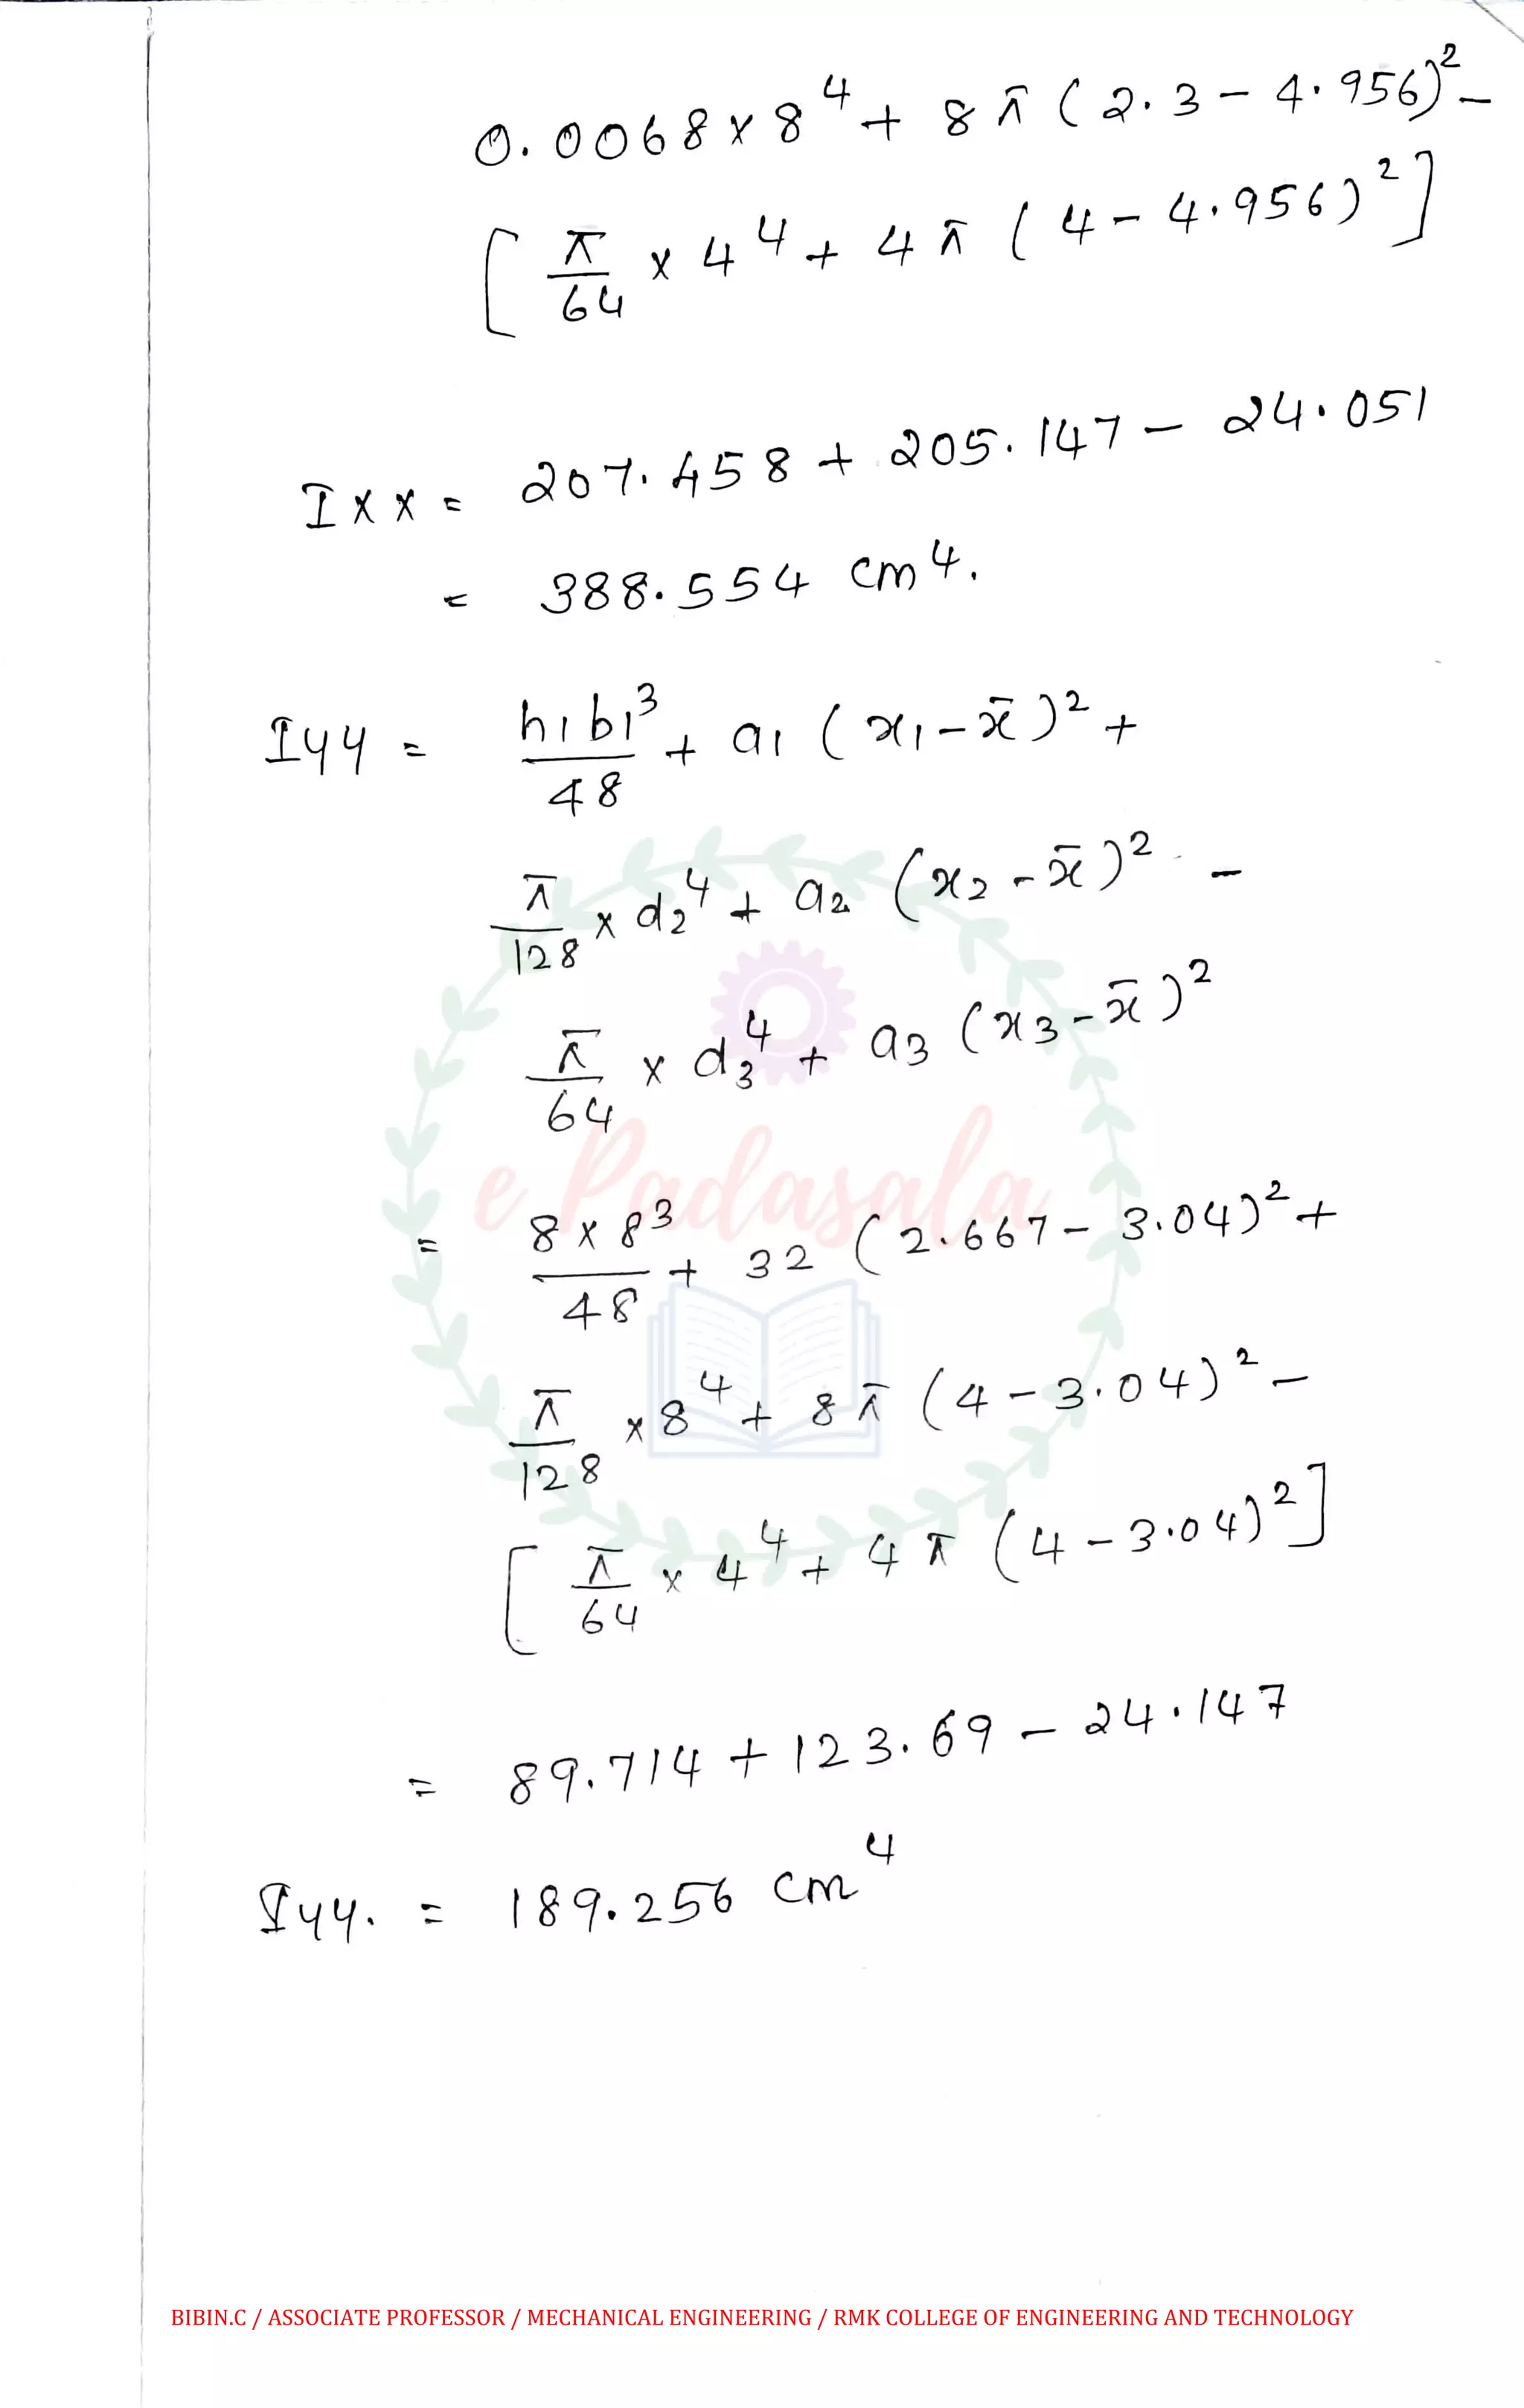 0.0068 x 8^4 + 8 π (2.3 - 4.956)^2 -
[ π/64 x 4^4 + 4 π (4 - 4.956)^2 ]
Ixx = 207.458 + 205.147 - 24.051
= 388.554 cm^4.
Iyy = h1b1^3/48 + a1 (x1 - x̄)^2 +
π/128 x d2^4 + a2 (x2 - x̄)^2 -
π/64 x d3^4 + a3 (x3 - x̄)^2
= 8 x 8^3/48 + 32 (2.667 - 3.04)^2 +
π/128 x 8^4 + 8 π (4 - 3.04)^2 -
[ π/64 x 4^4 + 4 π (4 - 3.04)^2 ]
= 89.714 + 123.69 - 24.147
Iyy. = 189.256 cm^4
e Padasala
BIBIN.C / ASSOCIATE PROFESSOR / MECHANICAL ENGINEERING / RMK COLLEGE OF ENGINEERING AND TECHNOLOGY